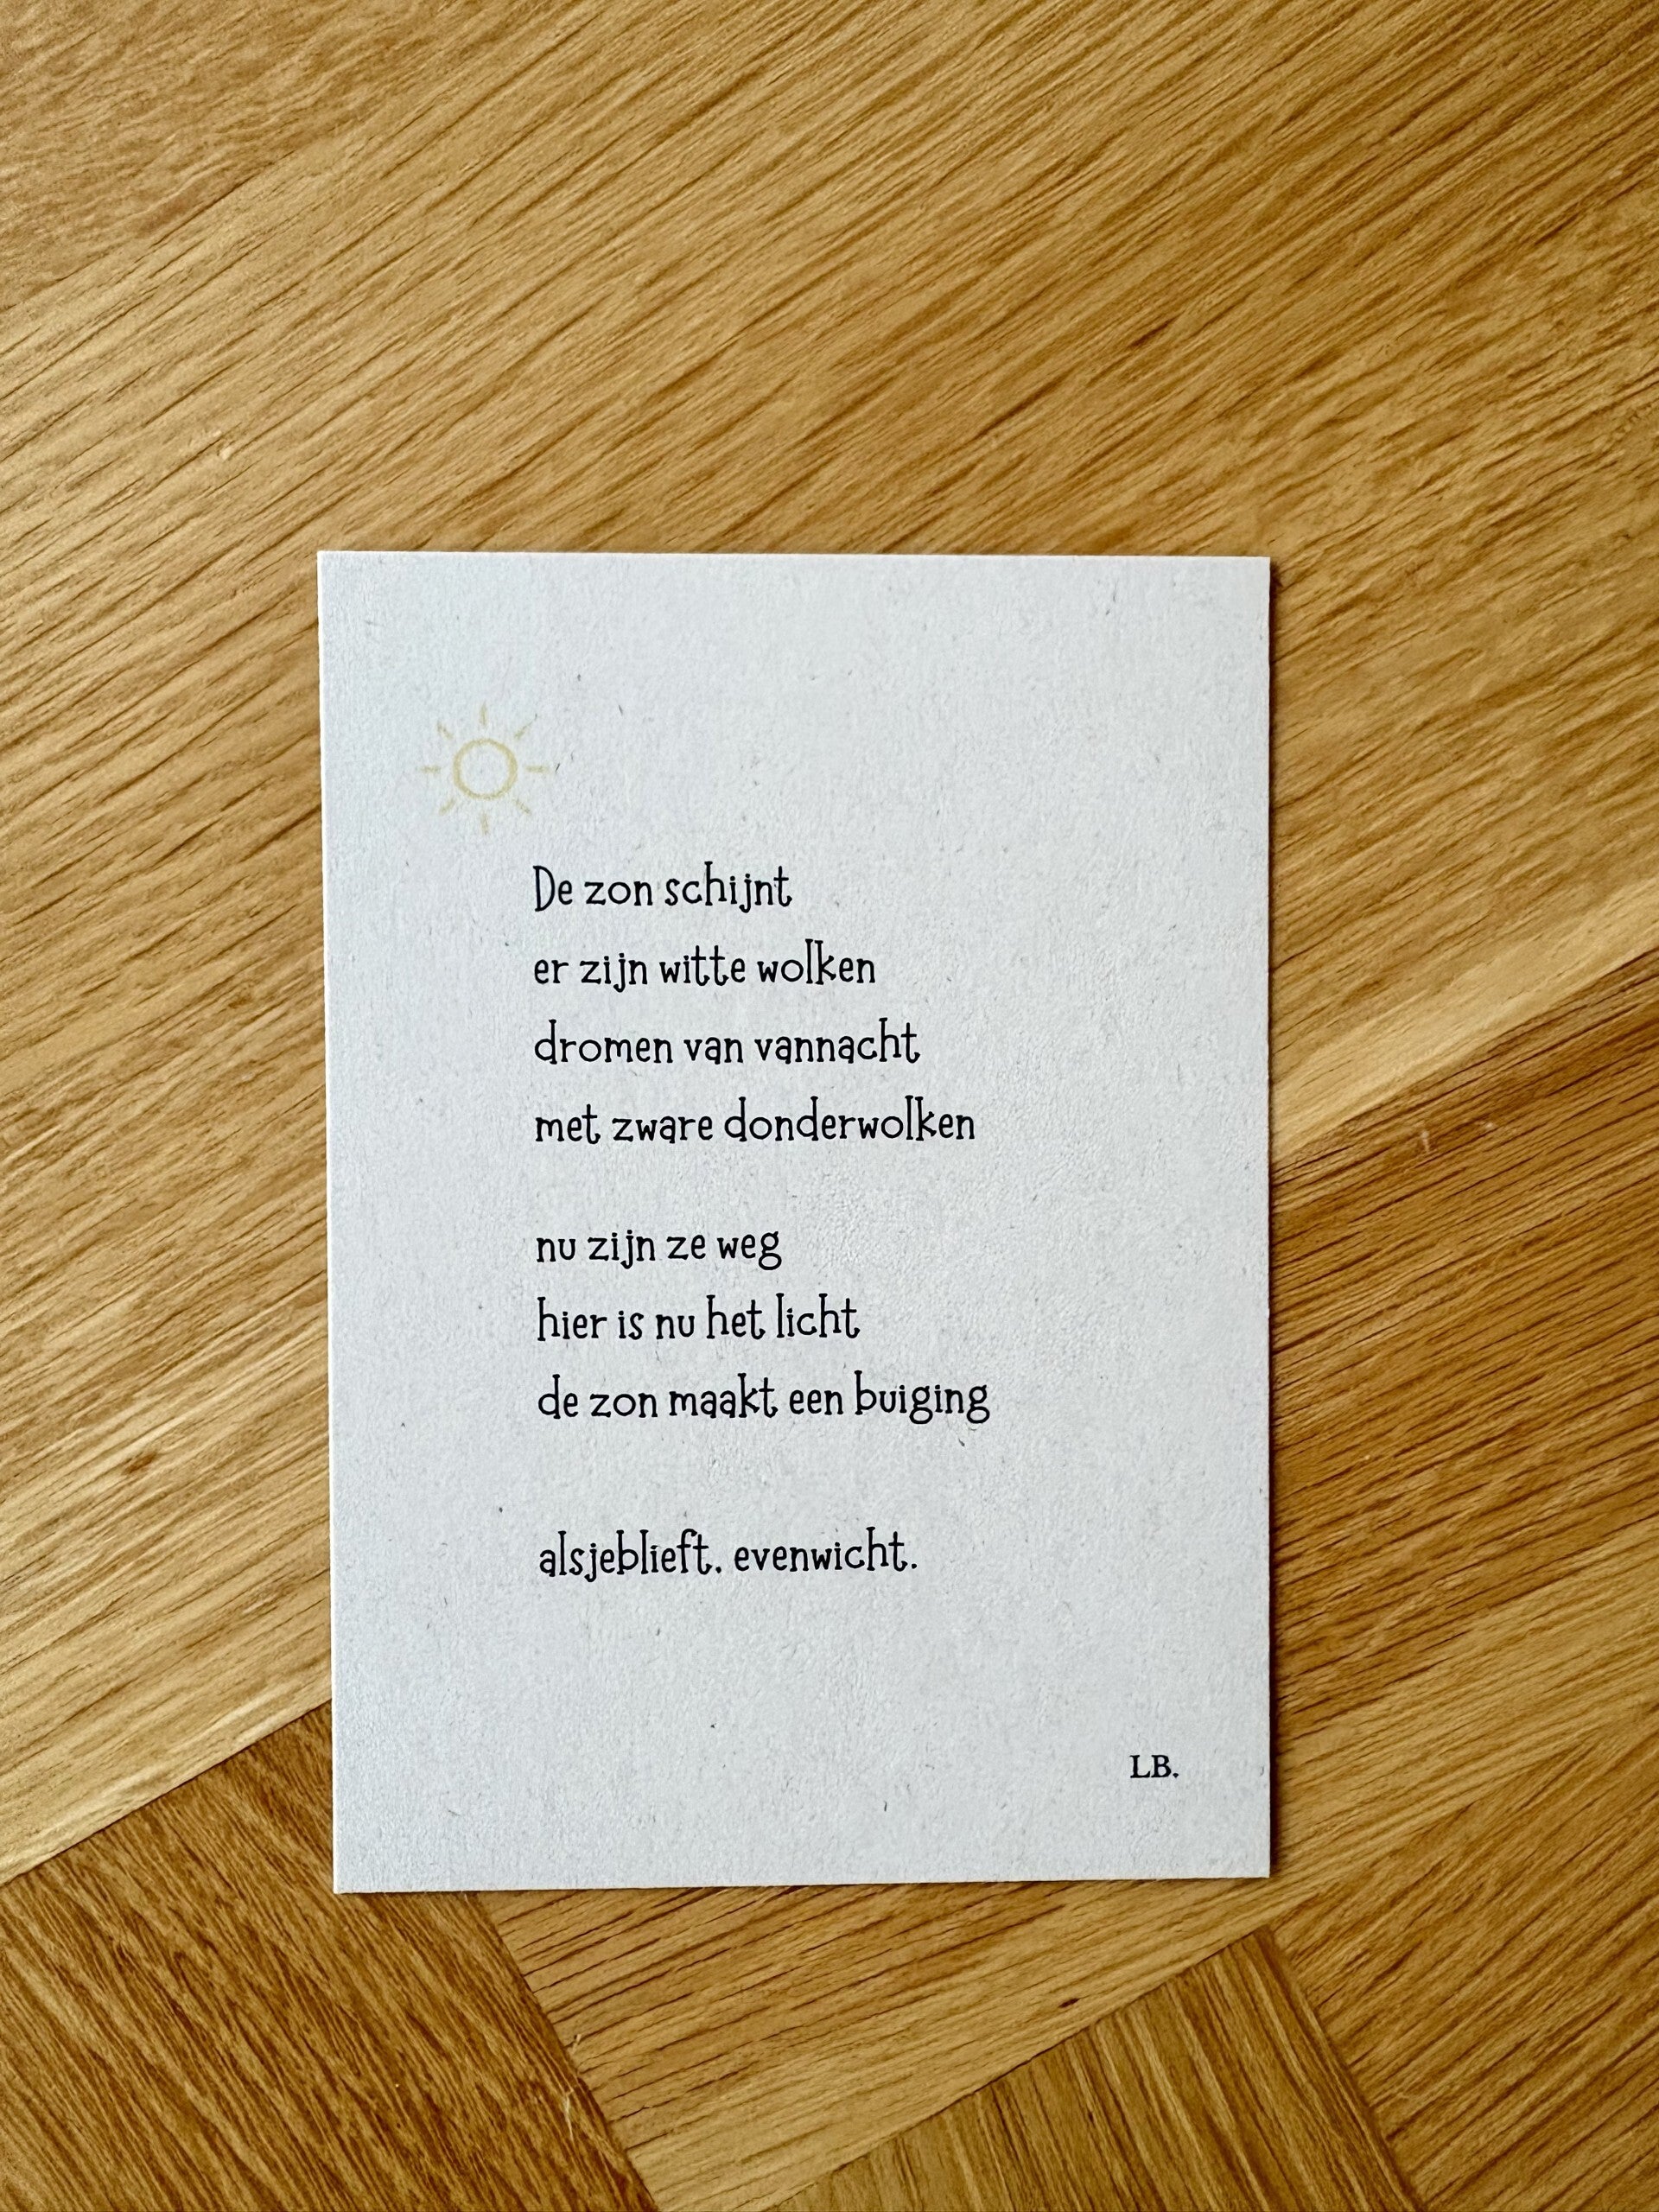 De zon schijnt
er zijn witte wolken
dromen van vannacht
met zware donderwolken
nu zijn ze weg
hier is nu het licht
de zon maakt een buiging
alsjeblieft. evenwicht.
LB.